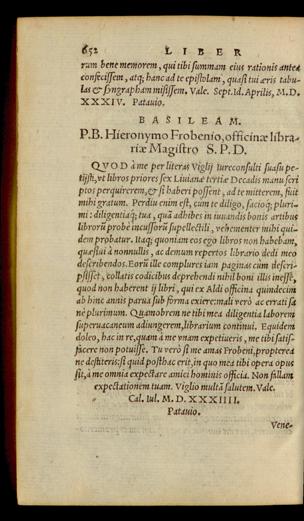 652 LIBER
rum bene memorem, qui tibi summam eius rationis antea
confecissem, atq; hanc ad te epistolam, quasi tui æris tabu-
las & syngrapham misissem. Vale. Sept. Id. Aprilis, M.D.
XXXIV. Patauio.
BASILEAM.
P.B. Hieronymo Frobenio, officinæ libra-
riæ Magistro S.P.D.
QVOD à me per literas Viglij iureconsulti suasu pe-
tijsti, ut libros priores sex Liuianæ tertiæ Decadis manuscri
ptos perquirerem, & si haberi possent, ad te mitterem, fuit
mihi gratum. Perdiu enim est, cum te diligo, facioq; pluri-
mi: diligentiaq; tua, quā adhibes in iuuandis bonis artibus
librorū probè incussorū supellectili, uehementer mihi qui-
dem probatur. Itaq; quoniam eos ego libros non habebam,
quæsiui à nonnullis, ac demum repertos librario dedi meo
describendos. Eorū ille complures iam paginas cùm descri-
psisset, collatis codicibus deprehendi nihil boni illi inesse,
quod non haberent ij libri, qui ex Aldi officina quindecim
ab hinc annis parua sub forma exiere: mali verò ac errati sa
nè plurimum. Quamobrem ne tibi mea diligentia laborem
superuacaneum adiungerem, librarium continui. Equidem
doleo, hac in re, quam à me vnam expetiueris, me tibi satis-
facere non potuisse. Tu verò si me amas Frobeni, propterea
ne destiteris: si quid posthac erit, in quo mea tibi opera opus
sit, à me omnia expectare amici hominis officia. Non fallam
expectationem tuam. Viglio multā salutem. Vale.
Cal. Iul. M.D.XXXIIII.
Patauio.
Vene-